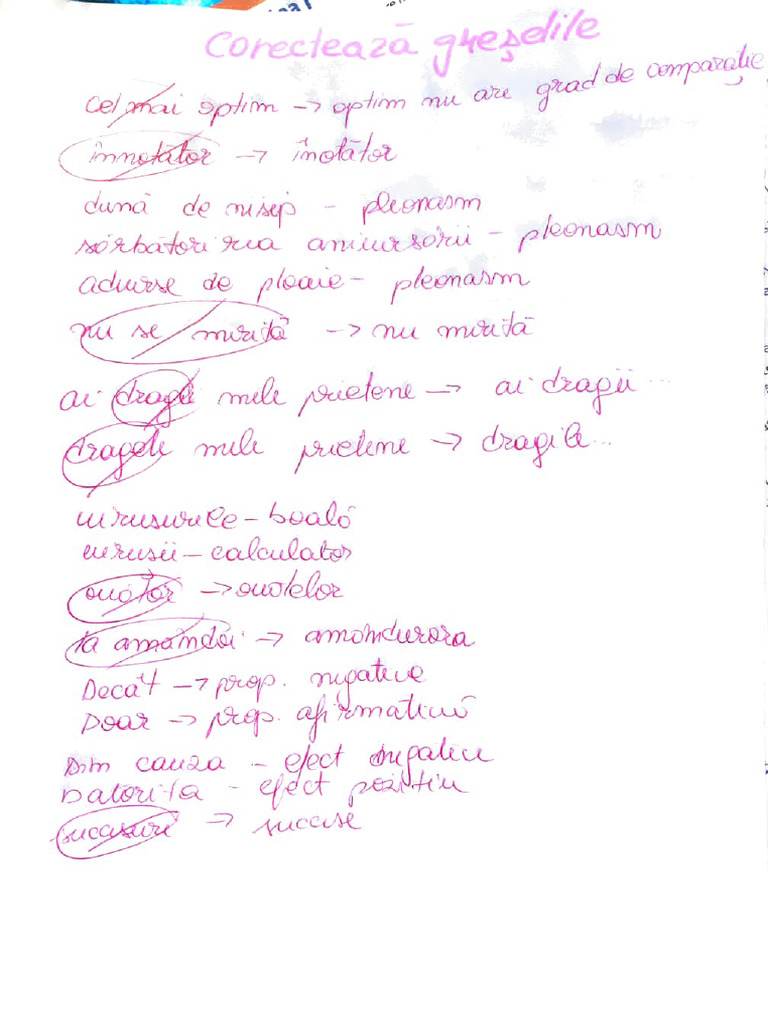 Corectează greșelile
cel mai optim → optim nu are grad de comparație
înnotător → înotător
dună de nisip - pleonasm
sărbătorirea aniversării - pleonasm
averse de ploaie - pleonasm
nu se merită → nu merită
ai dragi mele prietene → ai dragii ...
dragele mele prietene → dragile...
virusurile - boală
virusii - calculator
ouălor → ouălelor
la amândoi → amândurora
Decât → prop. negative
Doar → prop. afirmativă
Din cauza - efect negativ
Datorita - efect pozitiv
succesuri → succese